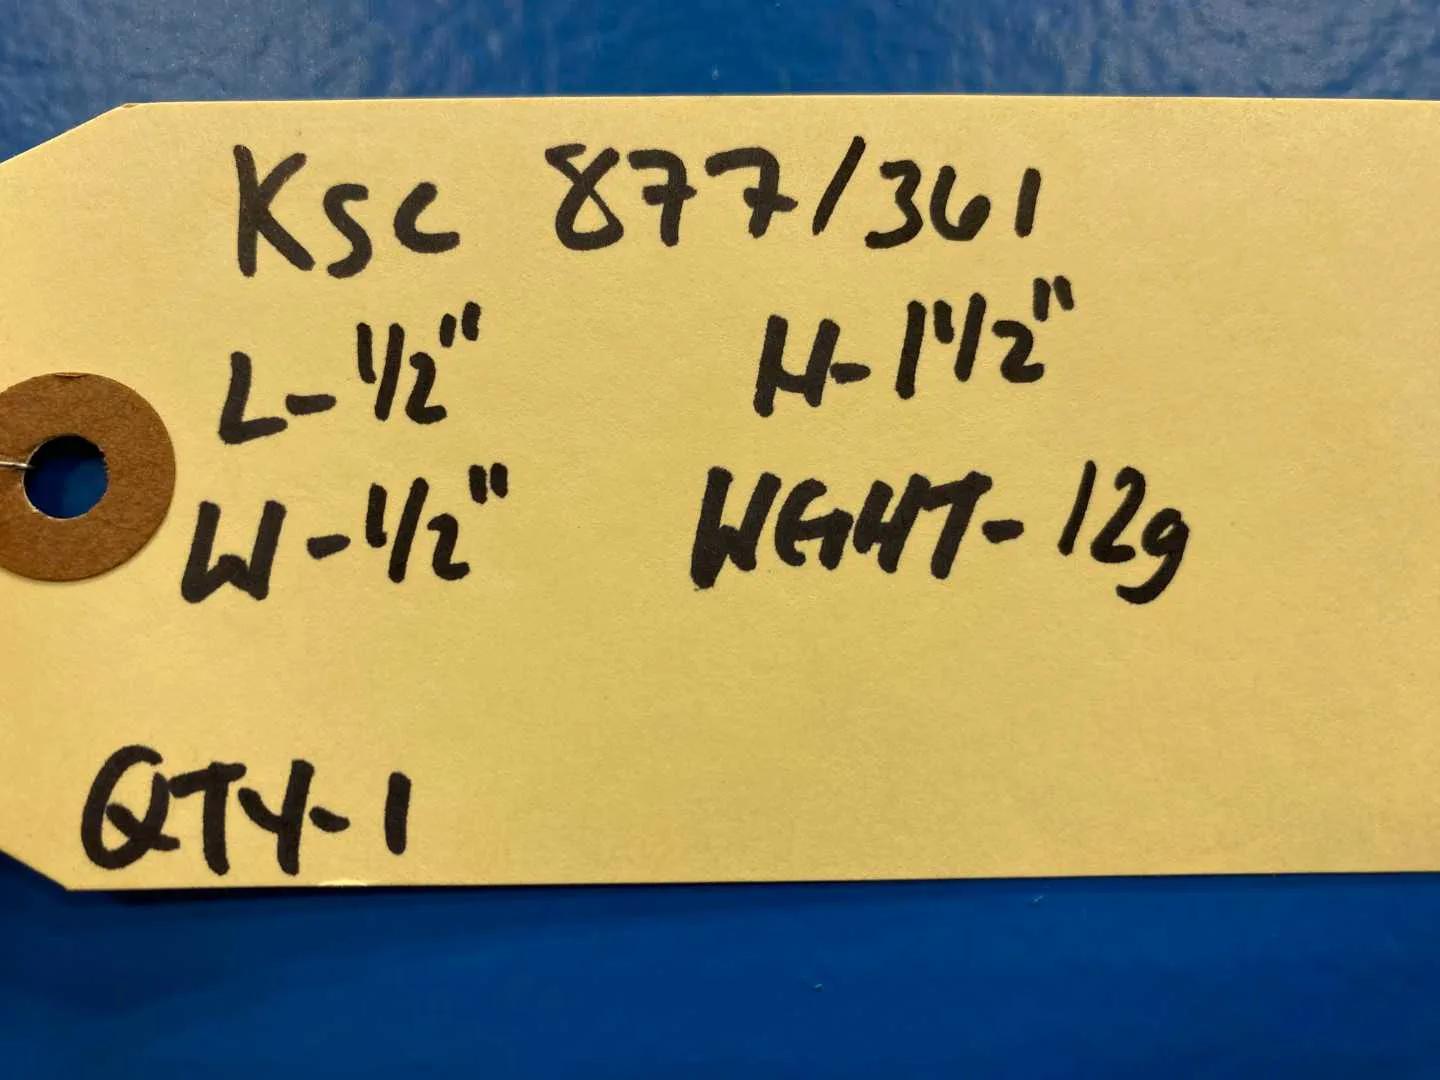 Ksc 877/361
L-1/2" H-1 1/2"
W-1/2" WGHT-12g
QTY-1